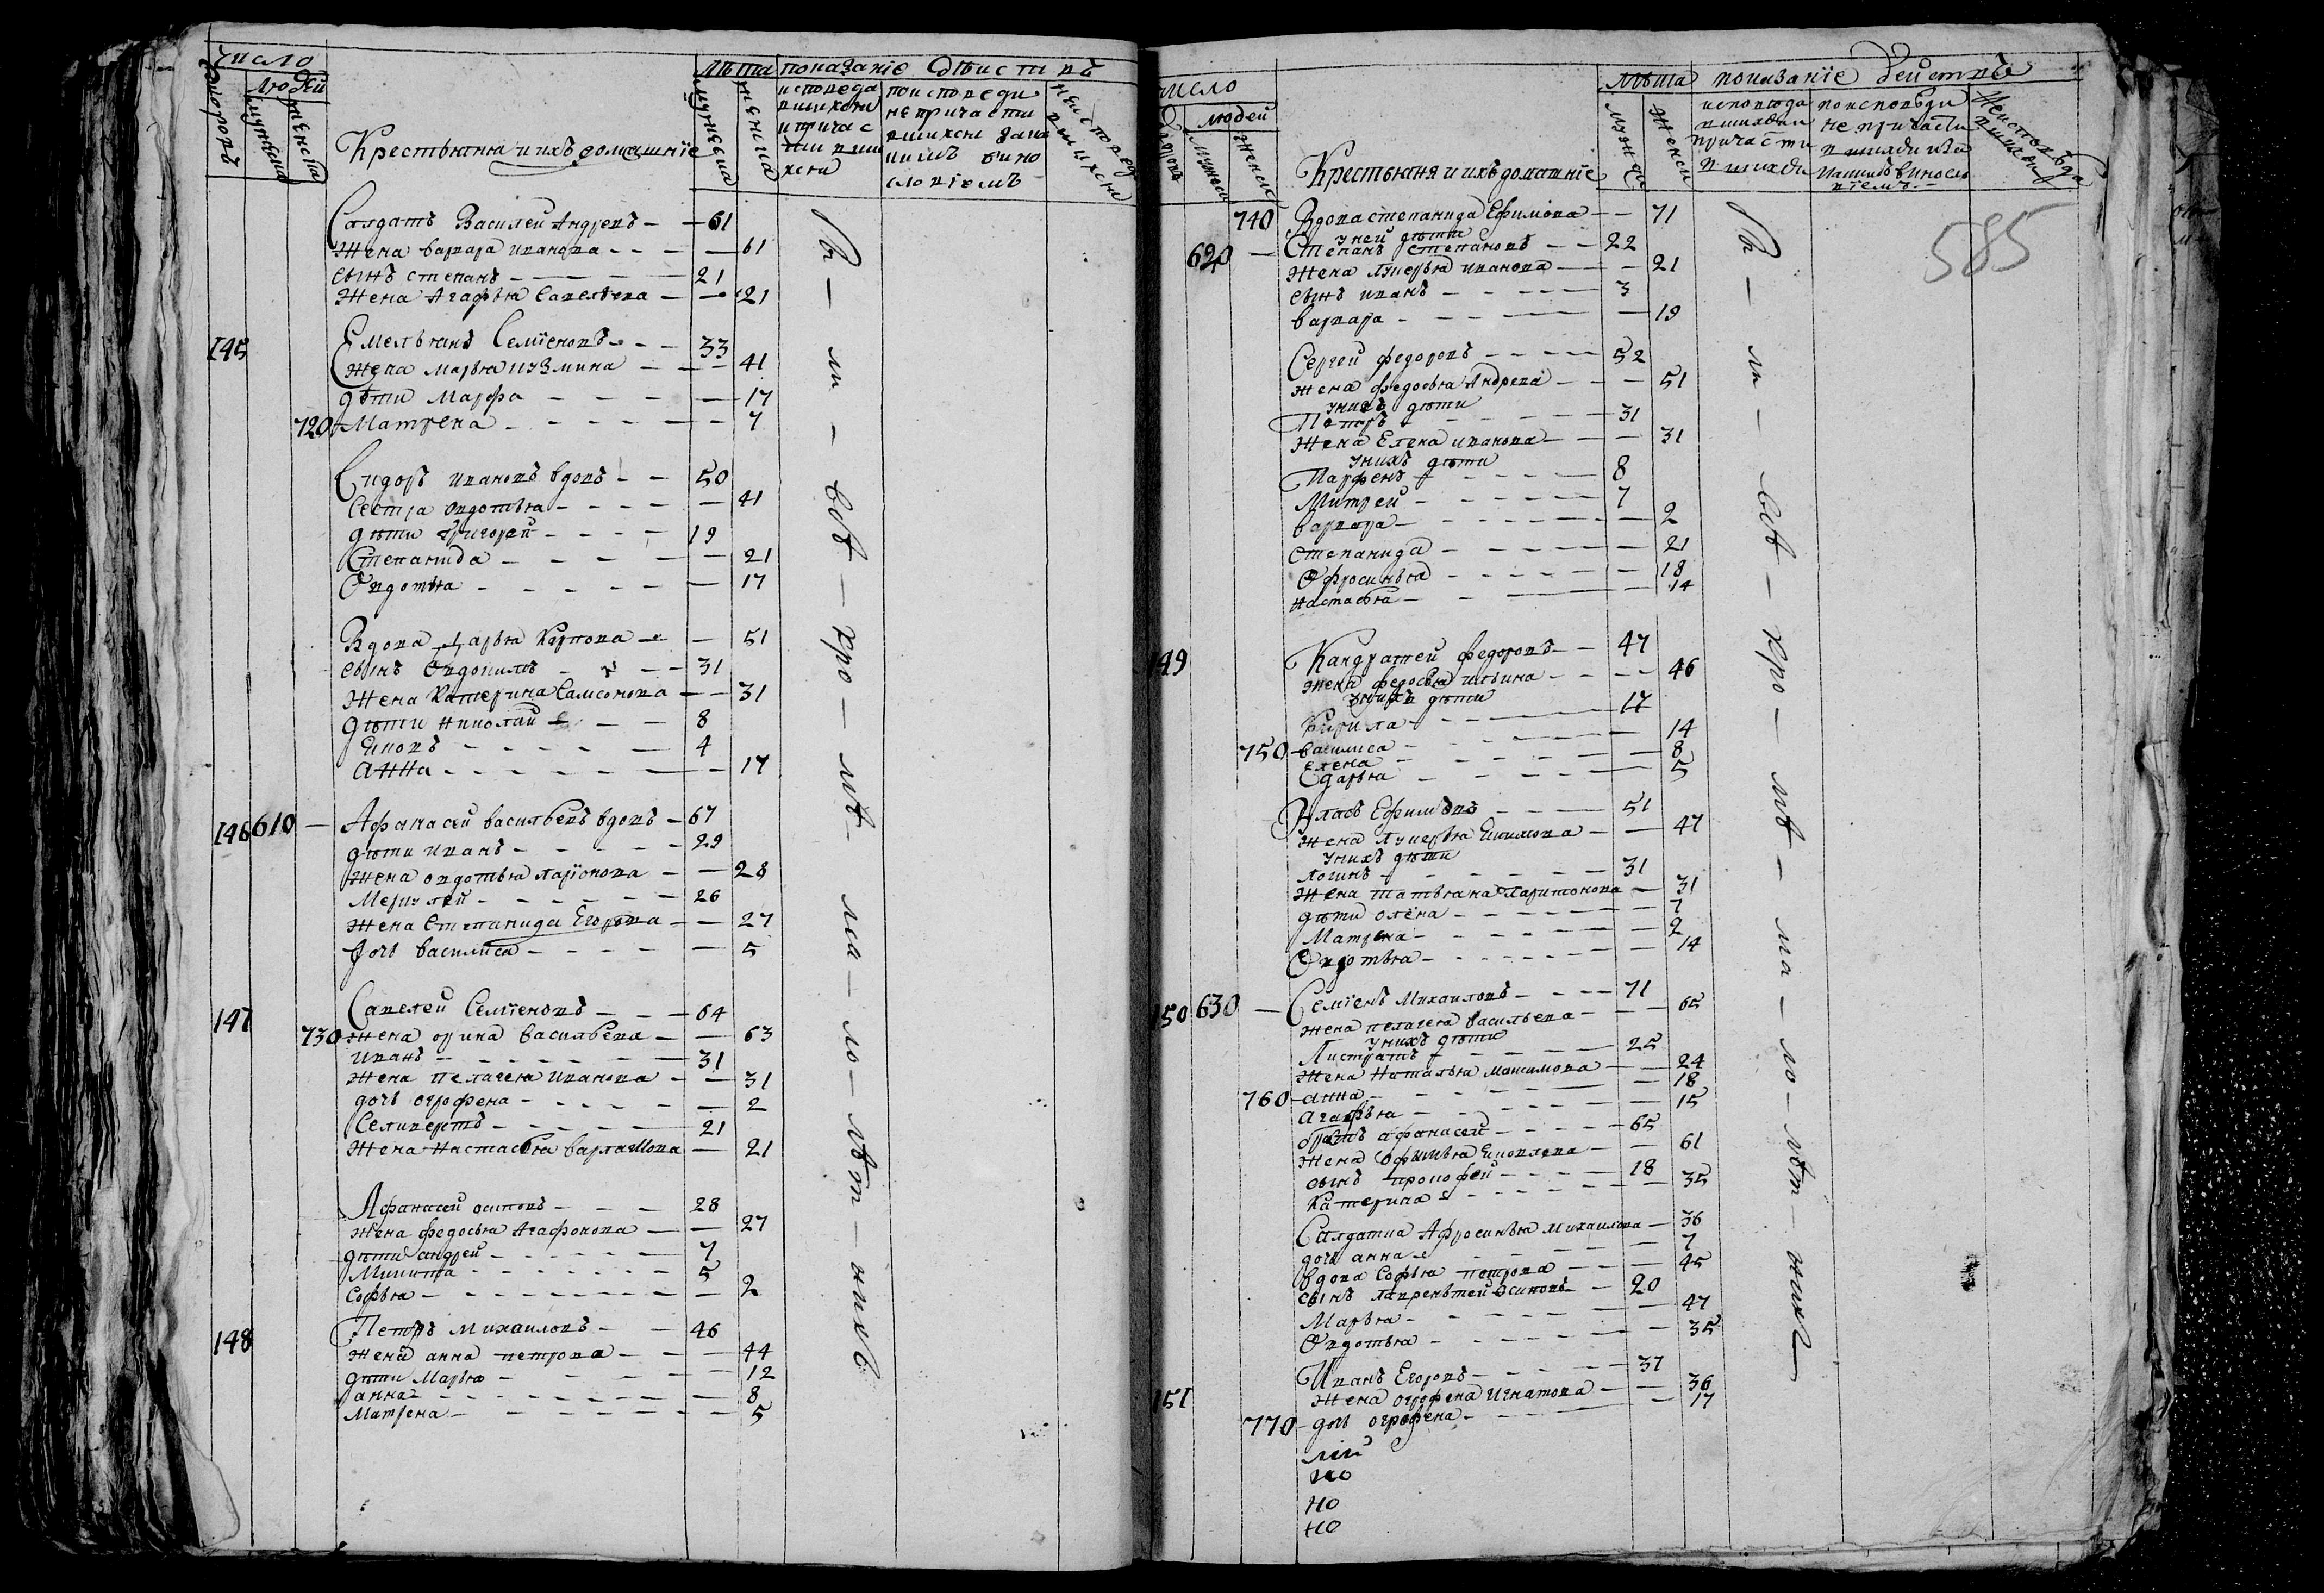 число
дворовъ
людей
мужеска
женска
Крестьяня и ихъ домашнїе
лѣта
мужеска
женска
показанїе действъ
исповеда
вшихся
и причас
тив вши
хся
поисповеди
не причасти
вшихся зака
кимъ вино
словїемъ
неисповеда
вшихся
Салдатъ Василей Андревъ — — 61
жена варвара иванова — — — — 61
сынъ степанъ — — — — 21
жена Агафья Савельева — — 21
145 Емельянъ Семїеновъ — — 33
жена марья кузмина — — — 41
дѣти Марфа — — — — 17
720 Матрена — — — — — 7
Сидоръ ивановъ вдовъ — — 50
сестра овдотья — — — — 41
дѣти Григорей — — — 19
Степанида — — — — — 21
Овдотья — — — — — 17
Вдова Дарья Карпова — — 51
сынъ Овдокимъ — — — 31
жена Катерина Самсонова — — 31
дѣти николай — — 8
Яковъ — — — — — 4
анна — — — — — — 17
146 610 — Афанасей васильевъ вдовъ — 67
дѣти иванъ — — — — — 29
жена овдотья ларїонова — — 28
Меркулей — — — — — 26
жена Степанида Егорова — — 27
дочь василиса — — — — — 5
147 Савелей Семїеновъ — — — 64
730 жена орина васильева — — 63
иванъ — — — — — 31
жена пелагея иванова — — 31
дочь огрофена — — — — — 2
Селиверстъ — — — — — 21
жена настасья варламова — 21
Афанасей осиповъ — — — 28
жена федосья Агафонова — — 27
дѣти андрей — — — — 7
Микита — — — — — 5
софья — — — — — — 2
148 Петръ михаиловъ — — 46
жена анна петрова — — — 44
дѣти Марья — — — — 12
анна — — — — — — 8
Матрена — — — — — — 5
вѣ — ли — всѣ — кро — мѣ — ма — ло — лѣт — нихъ
число
людей
мужеска
женска
Крестьяня и ихъ домашнїе
лѣта
мужеска
женска
показанїе действъ
исповеда
вшихся и
причасти
вшихся
поисповеди
не причасти
вшихся иза
какимъ виносло
вїемъ
неисповеда
вшихся
585
740 Вдова степанида Ефимова — — 71
у ней дѣти
620 — Степанъ степановъ — — 22
жена лукерья иванова — — 21
сынъ иванъ — — — — 3
варвара — — — — — 19
Сергей федоровъ — — — — 52
жена федосья Андрева — — — 51
у нихъ дѣти
Петръ — — — — — 31
жена Елена иванова — — — 31
у нихъ дѣти
Парфенъ — — — — 8
Митрей — — — — — 7
варвара — — — — — — 2
степанида — — — — — 21
Офросинья — — — — — 18
настасья — — — — — 14
149 Кандратей федоровъ — — 47
жена федосья ильина — — — — 46
у нихъ дѣти
Кирила — — — — — 17
750 — василиса — — — — — 14
елена — — — — — 8
дарья — — — — — — 5
Власъ Ефимовъ — — — — 51
жена лукерья Екимова — — 47
у нихъ дѣти
логинъ — — — — — — 31
жена татьяна Харитонова — 31
дѣти олена — — — — — 7
Матрена — — — — — — 2
Овдотья — — — — — — 14
150 630 — Семїенъ Михаиловъ — — — 71
жена пелагея васильева — — — 65
у нихъ дѣти
Листратъ — — — — — 25
жена наталья максимова — — 24
760 — анна — — — — — — 18
агафья — — — — — — 15
братъ афанасей — — — — 65
жена Офимья Яковлева — — 61
сынъ прокофей — — — — 18
катерина — — — — — 35
Салдатка Афросинья михаилова — 36
дочь анна — — — — — 7
вдова Софья петрова — — — 45
сынъ лаврентей Осиповъ — 20
Марья — — — — — — 47
Овдотья — — — — — — 35
151 Иванъ Егоровъ — — — — 37
жена огрофена Игнатова — — 36
770 — дочь огрофена — — — — 17
вѣ — ли — всѣ — кро — мѣ — ма — ло — лѣт — нихъ